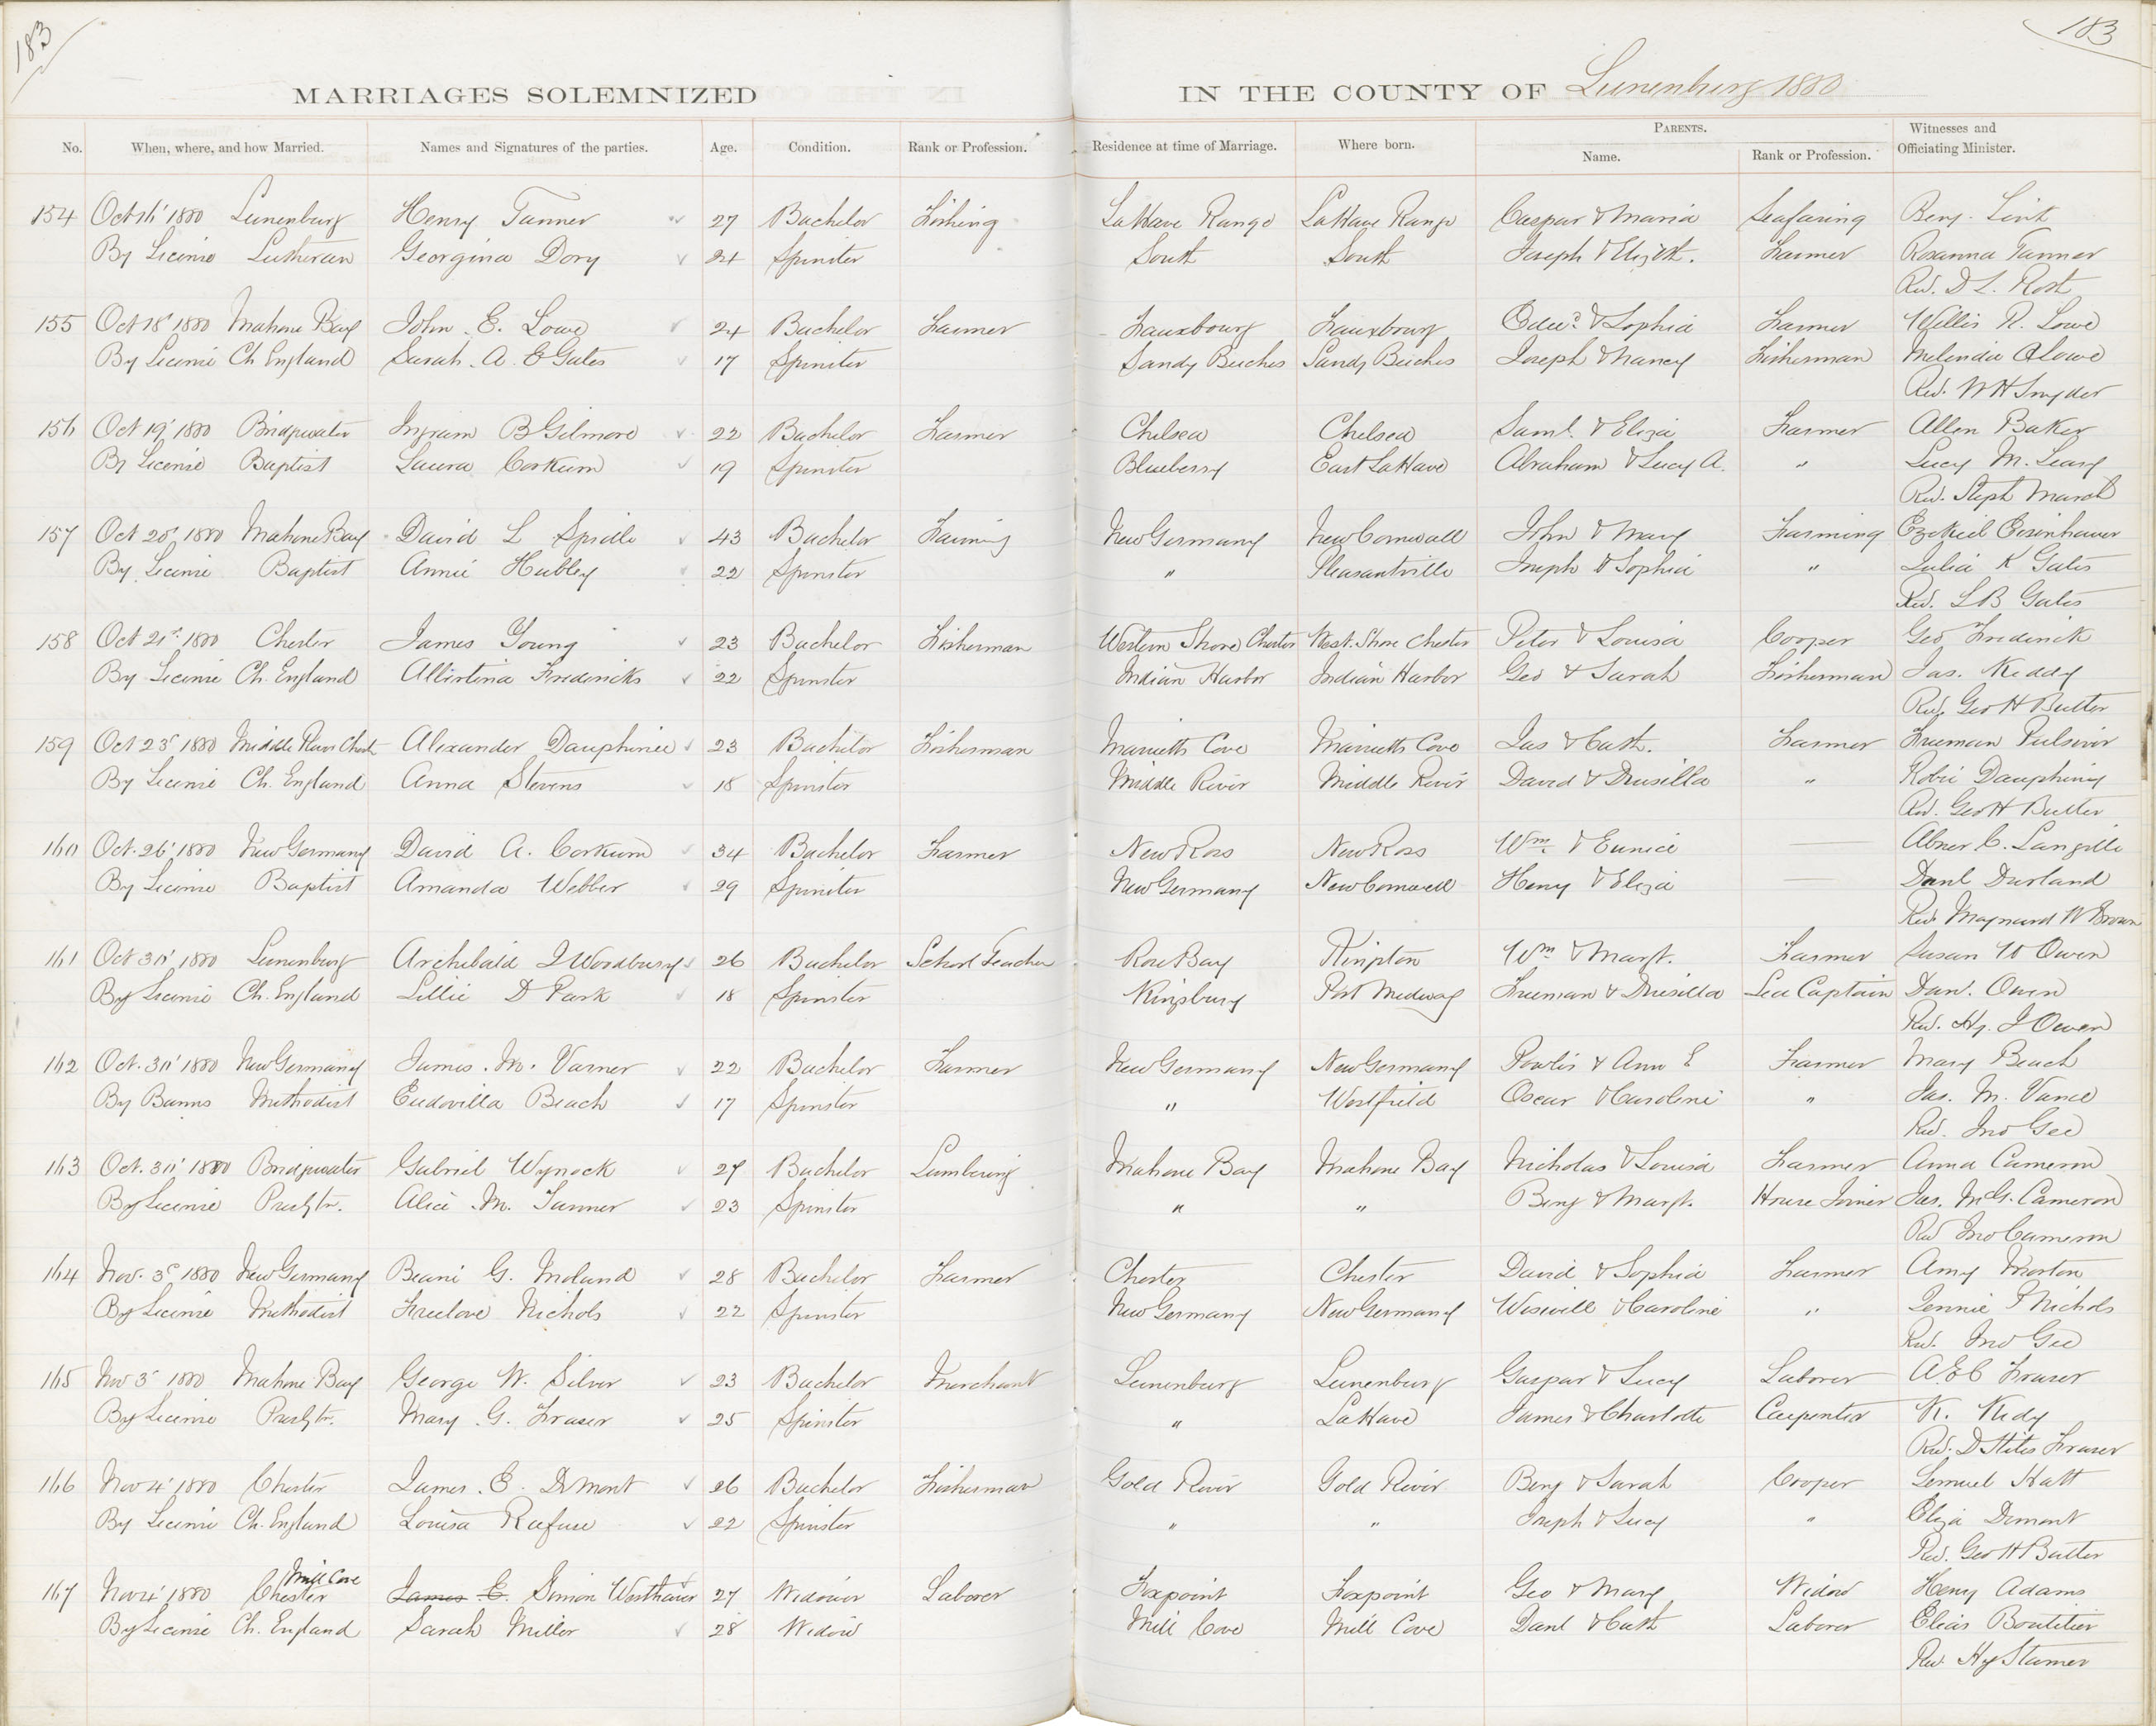 183
183
MARRIAGES SOLEMNIZED IN THE COUNTY OF Lunenburg 1880
No. When, where, and how Married. Names and Signatures of the parties. Age. Condition. Rank or Profession. Residence at time of Marriage. Where born. PARENTS. Name. Rank or Profession. Witnesses and Officiating Minister.
154 Oct 16' 1880 Lunenburg Henry Tanner 27 Bachelor Fishing LaHave Range LaHave Range Caspar & Maria Seafaring Benj. Link
By License Lutheran Georgina Dory 24 Spinster South South Joseph & Elizth. Farmer Rosanna Tanner
Rev. D L. Roth
155 Oct 18' 1880 Mahone Bay John E. Lowe 24 Bachelor Farmer Fauxbourg Fauxbourg Edwd & Sophia Farmer Willis R. Lowe
By License Ch England Sarah A. E Gates 17 Spinster Sandy Beiches Sandy Beiches Joseph & Nancy Fisherman Melinda A Lowe
Rev. W H Snyder
156 Oct 19' 1880 Bridgwater Ingram B Gilmore 22 Bachelor Farmer Chelsea Chelsea Saml. & Eliza Farmer Allen Baker
By License Baptist Laura Corkum 19 Spinster Blueberry East LaHave Abraham & Lucy A. " Lucy M. Leary
Rev. Steph March
157 Oct 20' 1880 Mahone Bay David L Spidle 43 Bachelor Farming New Germany New Cornwall John & Mary Farming Ezekiel Eisenhauer
By License Baptist Annie Hubley 22 Spinster " Pleasantville Joseph & Sophia " Julia K Gates
Rev. L B Gates
158 Oct 21st 1880 Chester James Young 23 Bachelor Fisherman Western Shore Chester West. Shore Chester Peter & Louisa Cooper Geo Frederick
By License Ch. England Albertina Fredericks 22 Spinster Indian Harbor Indian Harbor Geo & Sarah Fisherman Jas. Keddy
Rev. Geo H Butler
159 Oct 23d 1880 Middle River Chest Alexander Dauphinee 23 Bachelor Fisherman Marrietts Cove Marrietts Cove Jas & Cath. Farmer Freeman Pulsiver
By License Ch. England Anna Stevens 18 Spinster Middle River Middle River David & Drusilla " Robie Dauphiny
Rev. Geo H Butler
160 Oct. 26' 1880 New Germany David A. Corkum 34 Bachelor Farmer New Ross New Ross Wm. & Eunice — Abner C. Langille
By License Baptist Amanda Webber 29 Spinster New Germany New Cornwall Henry & Eliza — Danl Durland
Rev. Maynard W Brown
161 Oct 30' 1880 Lunenburg Archibald J Woodbury 26 Bachelor School Teacher Rose Bay Kingston Wm & Margt. Farmer Susan W Owen
By License Ch. England Lillie D Park 18 Spinster Kingsburg Port Medway Freeman & Drusilla Sea Captain Dan. Owen
Rev. Hy. J Owen
162 Oct. 30' 1880 New Germany James. M. Varner 22 Bachelor Farmer New Germany New Germany Powlis & Ann E Farmer Mary Beach
By Banns Methodist Eudovilla Beach 17 Spinster " Westfield Oscar & Caroline " Jas. M. Vance
Rev. Jno Gee
163 Oct. 30' 1880 Bridgwater Gabriel Wynock 27 Bachelor Lumbering Mahone Bay Mahone Bay Nicholas & Louisa Farmer Anna Cameron
By License Presbytn. Alice M. Tanner 23 Spinster " " Benj & Margt. House Joiner Jas. McG. Cameron
Rev Jno Cameron
164 Nov. 3d 1880 New Germany Beani G. Meland 28 Bachelor Farmer Chester Chester David & Sophia Farmer Amy Morton
By License Methodist Freelove Nichols 22 Spinster New Germany New Germany Wiswill & Caroline " Jennie P Nichols
Rev. Jno Gee
165 Nov 3d 1880 Mahone Bay George W. Silver 23 Bachelor Merchant Lunenburg Lunenburg Gaspar & Lucy Laborer A E C Fraser
By License Presbytn. Mary G. Fraser 25 Spinster " LaHave James & Charlotte Carpenter K. Kedy
Rev. D Stiles Fraser
166 Nov 4' 1880 Chester James. E. Demont 26 Bachelor Fisherman Gold River Gold River Benj & Sarah Cooper Lemuel Hatt
By License Ch. England Louisa Rafuse 22 Spinster " " Joseph & Lucy " Eliza Demont
Rev. Geo H Butler
Mill Cove
167 Nov 4' 1880 Chester James E. Simon Westhaver 27 Widower Laborer Foxpoint Foxpoint Geo & Mary Widow Henry Adams
By License Ch. England Sarah Miller 28 Widow Mill Cove Mill Cove Danl & Cath Laborer Elias Boutilier
Rev Hy Stamer